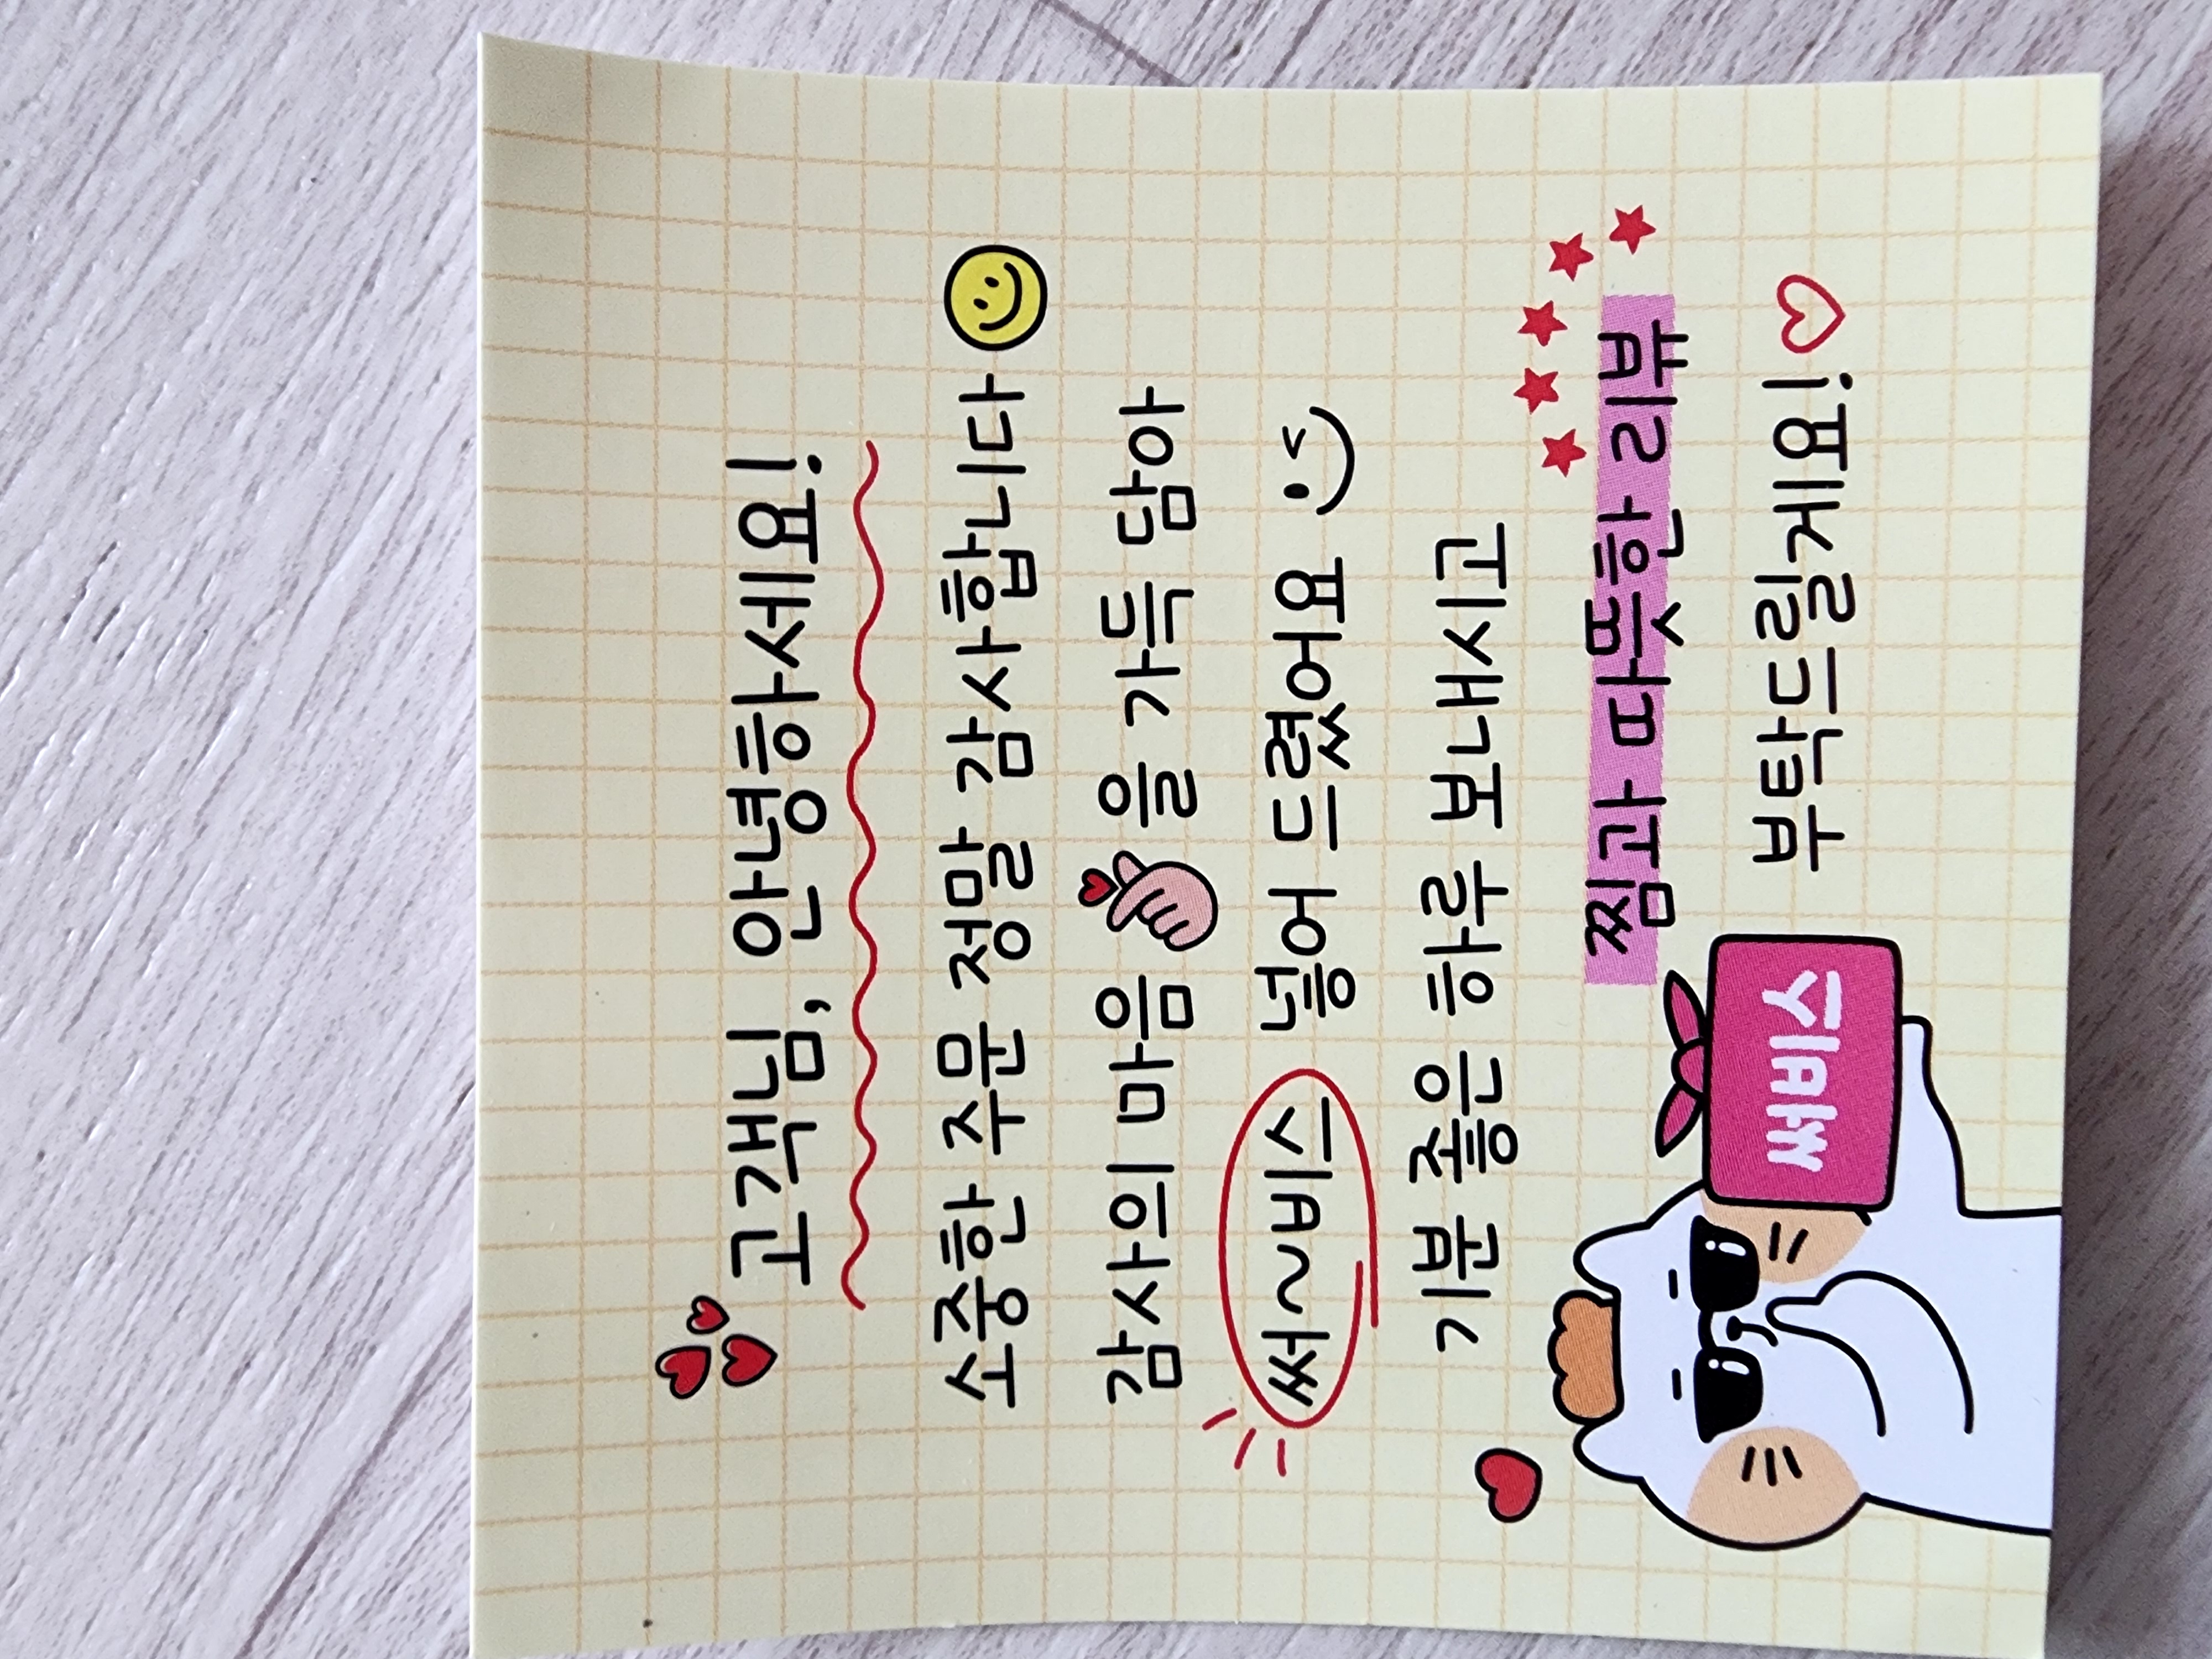 고객님, 안녕하세요!
소중한 주문 정말 감사합니다
감사의 마음 을 가득 담아
써~비스 넣어 드렸어요
기분 좋은 하루 보내시고
찜과 따뜻한 리뷰
부탁드릴게요!
써비스